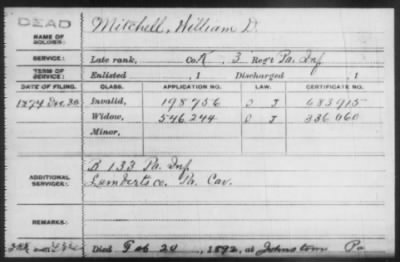 DEAD
Mitchell, William D.
NAME OF SOLDIER:
SERVICE: Late rank, Co. K, 3 Reg't Pa. Inf.
TERM OF SERVICE: Enlisted , 1 Discharged , 1
DATE OF FILING. CLASS. APPLICATION NO. LAW. CERTIFICATE NO.
1874 Dec. 30 Invalid, 198756 O J 683915
Widow, 546244 O J 336060
Minor,
ADDITIONAL SERVICES: B 133 Pa. Inf.
Lambert's co. Pa. Cav.
REMARKS:
Died Feb 20, 1892, at Johnstown Pa